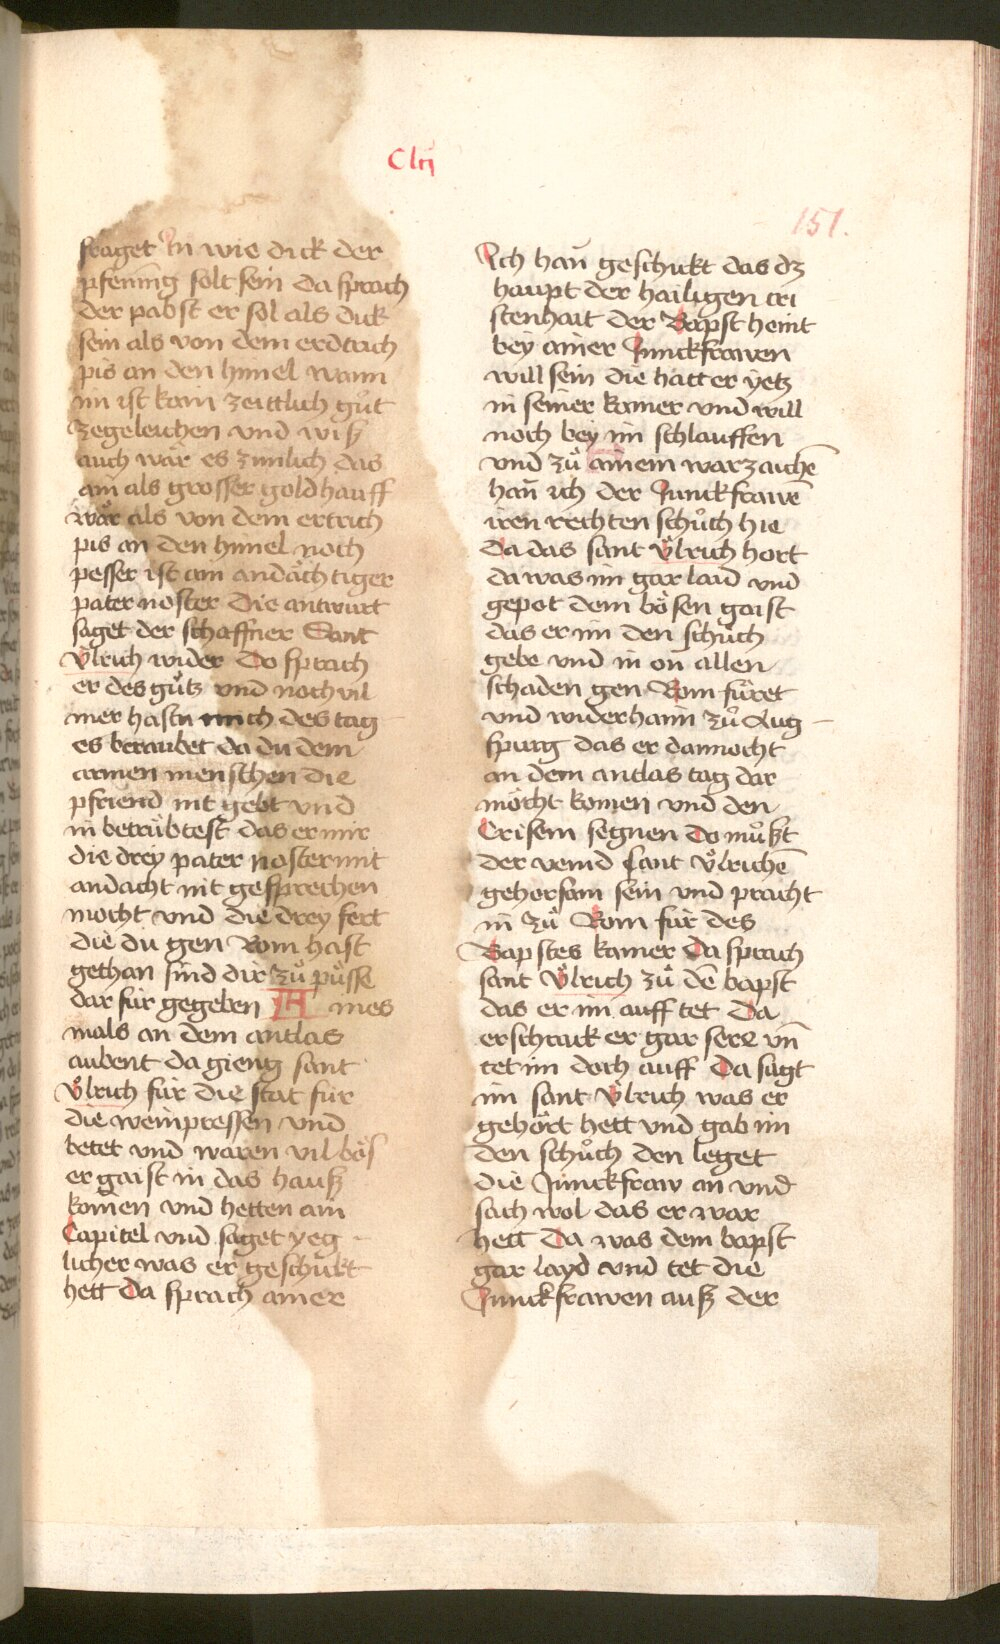 Clij
151.
fraget In wie dick der
pfening solt sein da sprach
der pabst er sol als dick
sein als von dem erdtrich
pis an den himel wann
im ist kain zeittlich gůt
zegeleichen vnd wiß
auch wär es zimlich das
ain als grosser goldhauff
wär als von dem ertrich
pis an den himel noch
pesser ist ain andächtiger
pater noster Die antwurt
saget der schaffner Sant
Vͦlrich wider Do sprach
er des gůtz vnd noch vil
mer hastu mich des tag
es beraubet da du dem
armen menschen die
pfriend nit gebt vnd
in betrübtest das er mir
die drey pater noster mit
andacht nit gesprechen
mocht vnd die drey fert
die du gen Rom hast
gethan sind dir zů půsse
dar für gegeben A ines
mals an dem antlas
aubent da gieng sant
Vͦlrich für die stat für
die weinpressen vnd
betet vnd waren vil bös
er gaist in das hauß
komen vnd hetten ain
Capitel vnd saget yeg
licher was er geschickt
hett Da sprach ainer
Ich hañ geschickt das dz
haupt der hailigen cri
stenhait der Bapst heint
bey ainer Junckfrawen
will sein die hatt er yetz
in seiner kamer vnd will
noch bey im schlauffen
vnd zů ainem warzaichē
hañ ich der Junckfrawē
iren rechten schůch hie
Da das sant Vͦlrich hort
da was im gar laid vnd
gepot dem bösen gaist
das er im den schůch
gebe vnd in on allen
schaden gen Rom füret
vnd widerhaim zů Aug
spurg das er dannocht
an dem antlas tag dar
möcht komen vnd den
Crisem segnen Do můßt
der veind sant Vͦlrichē
gehorsam sein vnd pracht
in zů Rom für des
Bapstes kamer Da sprach
sant Vͦlrich zů dē bapst
das er im auff tet Da
erschrack er gar sere vñ
tet im doch auff Da sagt
im sant Vͦlrich was er
gehört hett vnd gab im
den schůch den leget
die Junckfraw an vnd
sach wol das er war
hett Da was dem bapst
gar layd vnd tet die
Junckfrawen auß der